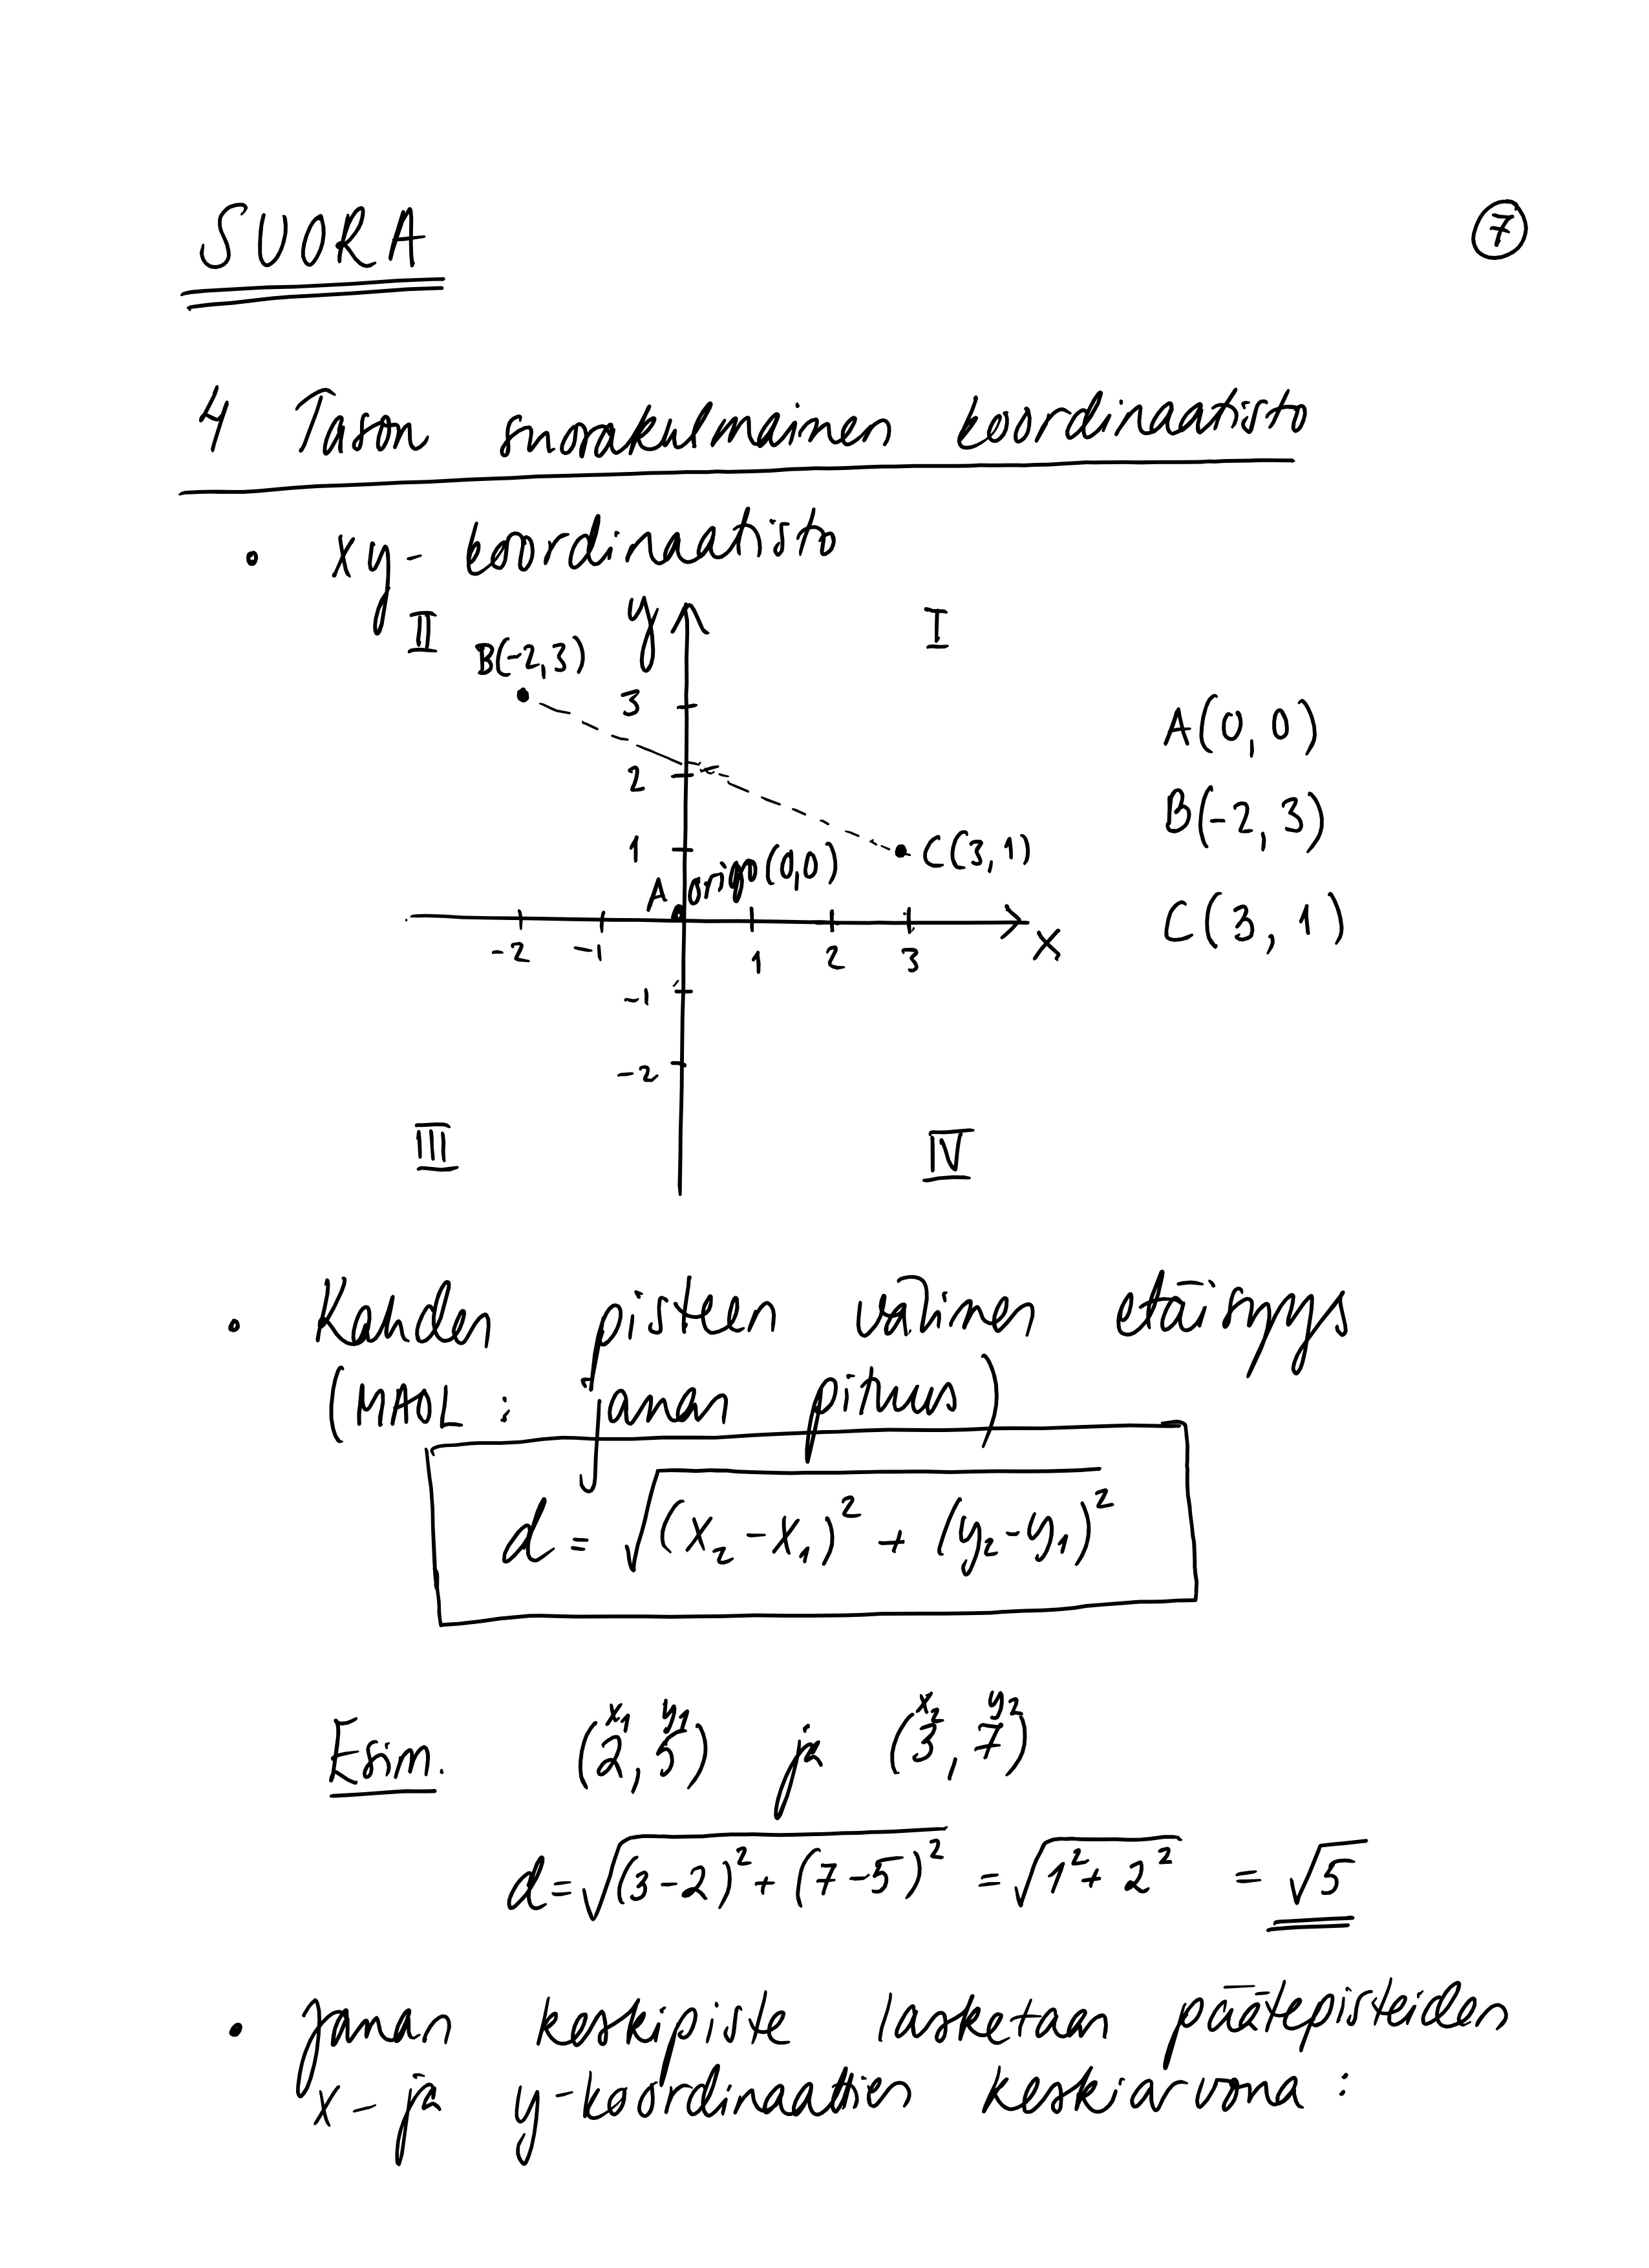 SUORA
7
4 Tason suorakulmainen koordinaatisto
• xy-koordinaatisto
II y I
B(-2,3)
3
A(0,0)
2
B(-2,3)
1 C(3,1)
A origo(0,0)
C(3,1)
-2 -1 1 2 3 x
-1
-2
III IV
• Kahden pisteen välinen etäisyys
(MAOL: janan pituus)
d = √((x₂-x₁)² + (y₂-y₁)²)
x₁ y₁ x₂ y₂
Esim. (2,5) ja (3,7)
d = √((3-2)² + (7-5)²) = √(1² + 2²) = √5
• Janan keskipiste lasketaan päätepisteiden
x- ja y-koordinaattien keskiarvona: